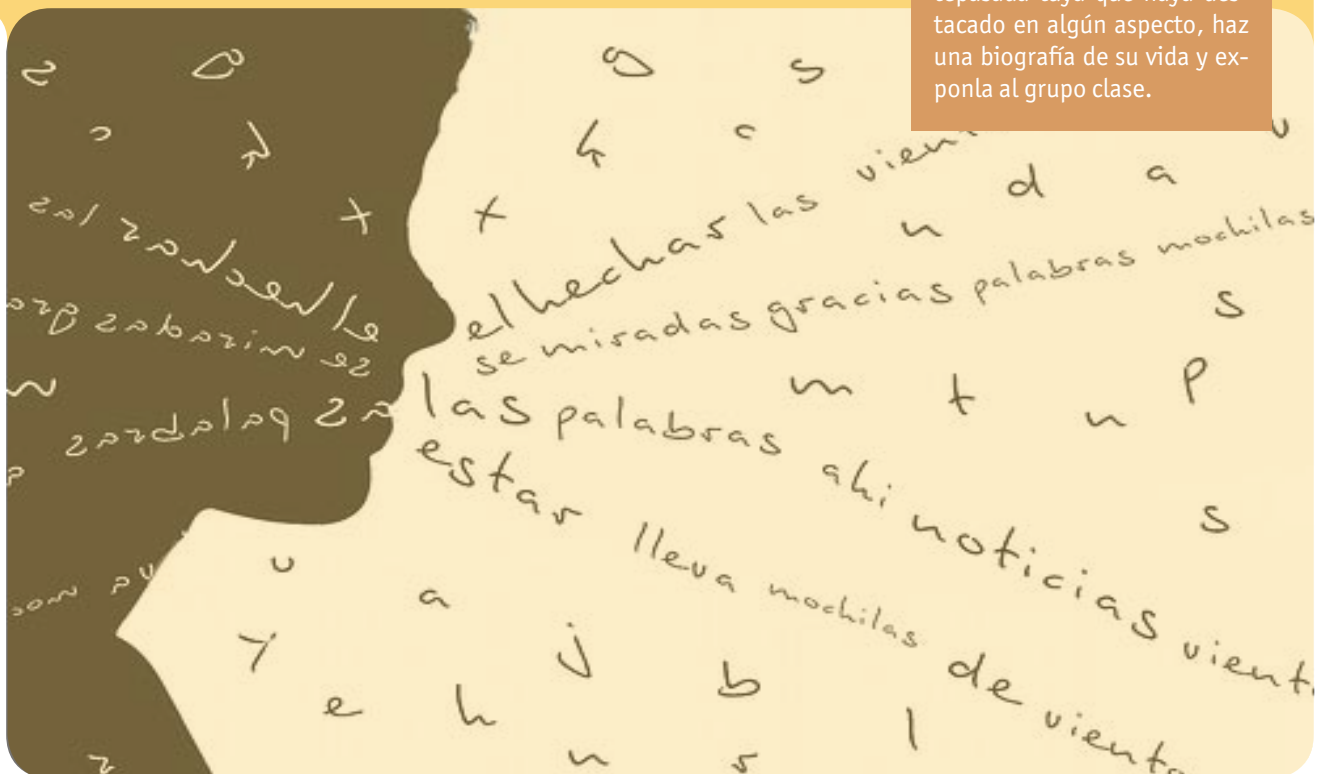 tacado en algún aspecto, haz
una biografía de su vida y ex-
ponla al grupo clase.
z g g s
c k k c
x x
el hechar las vient
n d a u
se miradas gracias palabras mochilas
s
las palabras ahi noticias vient
m t n p
s
estar lleva mochilas de viento
u a
y j b
e h l
n s